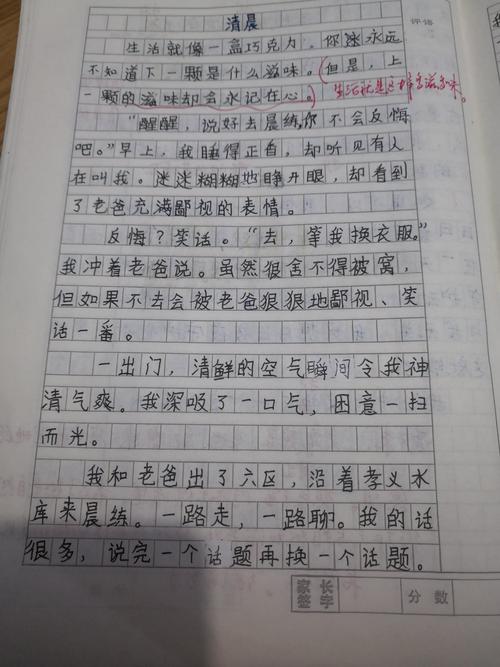 清晨
评语
生活就像一盒巧克力，你永远
不知道下一颗是什么滋味。（但是，上
一颗的滋味却会永记在心。）生活就是这样
“醒醒，说好去晨练，你不会反悔
吧。”早上，我睡得正香，却听见有人
在叫我。迷迷糊糊地睁开眼，却看到
了老爸充满鄙视的表情。
反悔？笑话。“去，等我换衣服。”
我冲着老爸说。虽然很舍不得被窝，
但如果不去会被老爸狠狠地鄙视、笑
话一番。
一出门，清鲜的空气瞬间令我神
清气爽。我深吸了一口气，困意一扫
而光。
我和老爸出了六区，沿着孝义水
库来晨练。一路走，一路聊。我的话
很多，说完一个话题再换一个话题。
家长签字
分数